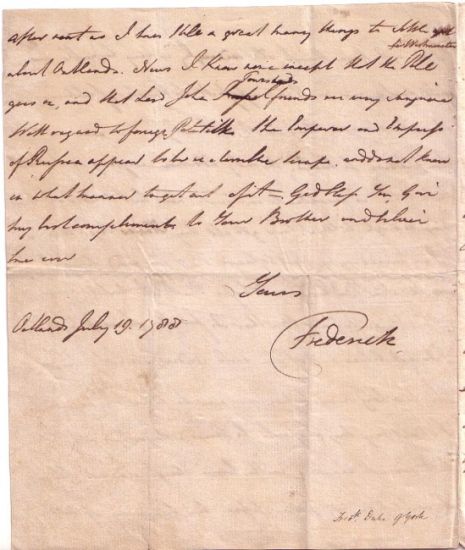 after noon as I have still a great many things to settle with
about Oatlands. News I know none except that the Pole
in Westminster
goes on, and that Lord John Townshends friends are very sanguine
With regard to foreign Politiks the Emperor and Empress
of Russia appear to be in a terrible scrape, and do not know
in what manner to get out of it — God bless You, Give
my best compliments to Your Brother and believe
me ever
Yours
Oatlands July 19. 1788
Frederick
Fredk. Duke of York